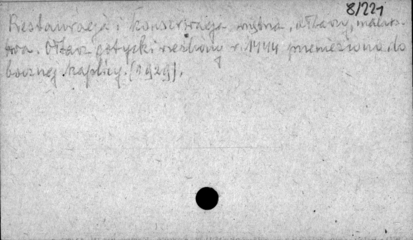 8/221
Restauracja i konserwacja wnętrza, ołtarzy, malow.
Ołtarz gotycki rzeźbiony z r. 1444 przeniesiono do
bocznej kaplicy. (1929).